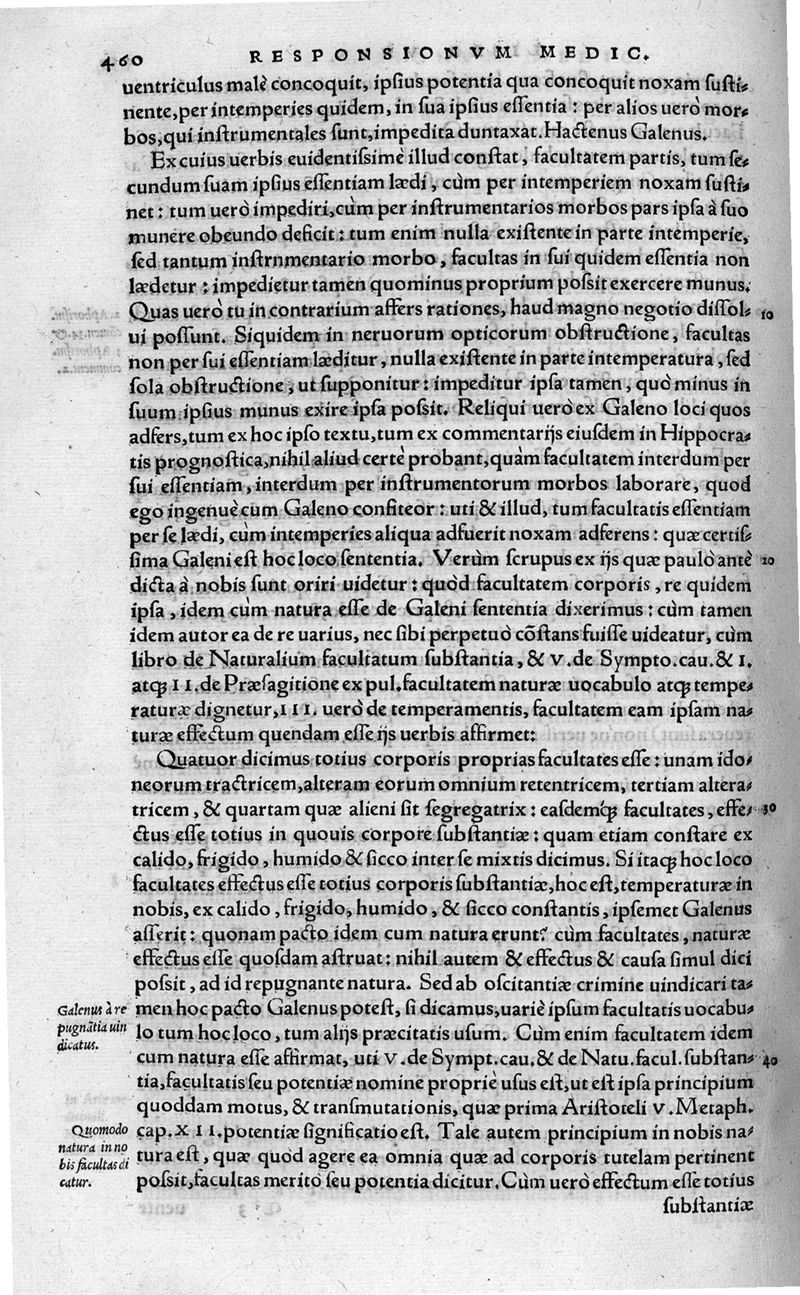 460 RESPONSIONVM MEDIC.
uentriculus malè concoquit, ipsius potentia qua concoquit noxam susti-
nente, per intemperies quidem, in sua ipsius essentia : per alios uerò mor-
bos, qui instrumentales sunt, impedita duntaxat. Hactenus Galenus.
Ex cuius uerbis euidentissimè illud constat, facultatem partis, tum se-
cundum suam ipsius essentiam lædi, cùm per intemperiem noxam susti-
net : tum uerò impediri, cùm per instrumentarios morbos pars ipsa à suo
munere obeundo deficit : tum enim nulla existente in parte intemperie,
sed tantum instrnmentario morbo, facultas in sui quidem essentia non
lædetur : impedietur tamen quominus proprium possit exercere munus.
Quas uerò tu in contrarium affers rationes, haud magno negotio dissol- 10
ui possunt. Siquidem in neruorum opticorum obstructione, facultas
non per sui essentiam læditur, nulla existente in parte intemperatura, sed
sola obstructione, ut supponitur : impeditur ipsa tamen, quò minus in
suum ipsius munus exire ipsa possit. Reliqui uerò ex Galeno loci quos
adfers, tum ex hoc ipso textu, tum ex commentarijs eiusdem in Hippocra-
tis prognostica, nihil aliud certè probant, quàm facultatem interdum per
sui essentiam, interdum per instrumentorum morbos laborare, quod
ego ingenuè cum Galeno confiteor : uti & illud, tum facultatis essentiam
per se lædi, cùm intemperies aliqua adfuerit noxam adferens : quæ certis-
sima Galeni est hoc loco sententia. Verùm scrupus ex ijs quæ paulò antè 20
dicta à nobis sunt oriri uidetur : quòd facultatem corporis, re quidem
ipsa, idem cùm natura esse de Galeni sententia dixerimus : cùm tamen
idem autor ea de re uarius, nec sibi perpetuò cōstans fuisse uideatur, cùm
libro de Naturalium facultatum substantia, & V. de Sympto. cau. & I.
atq; II. de Præsagitione ex pul. facultatem naturæ uocabulo atq; tempe-
raturæ dignetur, III. uerò de temperamentis, facultatem eam ipsam na-
turæ effectum quendam esse ijs uerbis affirmet:
Quatuor dicimus totius corporis proprias facultates esse : unam ido-
neorum tractricem, alteram eorum omnium retentricem, tertiam altera-
tricem, & quartam quæ alieni sit segregatrix : easdemq; facultates, effe- 30
ctus esse totius in quouis corpore substantiæ : quam etiam constare ex
calido, frigido, humido & sicco inter se mixtis dicimus. Si itaq; hoc loco
facultates effectus esse totius corporis substantiæ, hoc est, temperaturæ in
nobis, ex calido, frigido, humido, & sicco constantis, ipsemet Galenus
asserit : quonam pacto idem cum natura erunt? cùm facultates, naturæ
effectus esse quosdam astruat : nihil autem & effectus & causa simul dici
possit, ad id repugnante natura. Sed ab oscitantiæ crimine uindicari ta-
Galenus à re
pugnãtia uin
dicatus.
men hoc pacto Galenus potest, si dicamus, uariè ipsum facultatis uocabu-
lo tum hoc loco, tum alijs præcitatis usum. Cùm enim facultatem idem
cum natura esse affirmat, uti V. de Sympt. cau. & de Natu. facul. substan- 40
tia, facultatis seu potentiæ nomine propriè usus est, ut est ipsa principium
quoddam motus, & transmutationis, quæ prima Aristoteli V. Metaph.
Quomodo
natura in no
bis facultas di
catur.
cap. XII. potentiæ significatio est. Tale autem principium in nobis na-
tura est, quæ quòd agere ea omnia quæ ad corporis tutelam pertinent
possit, facultas meritò seu potentia dicitur. Cùm uerò effectum esse totius
substantiæ